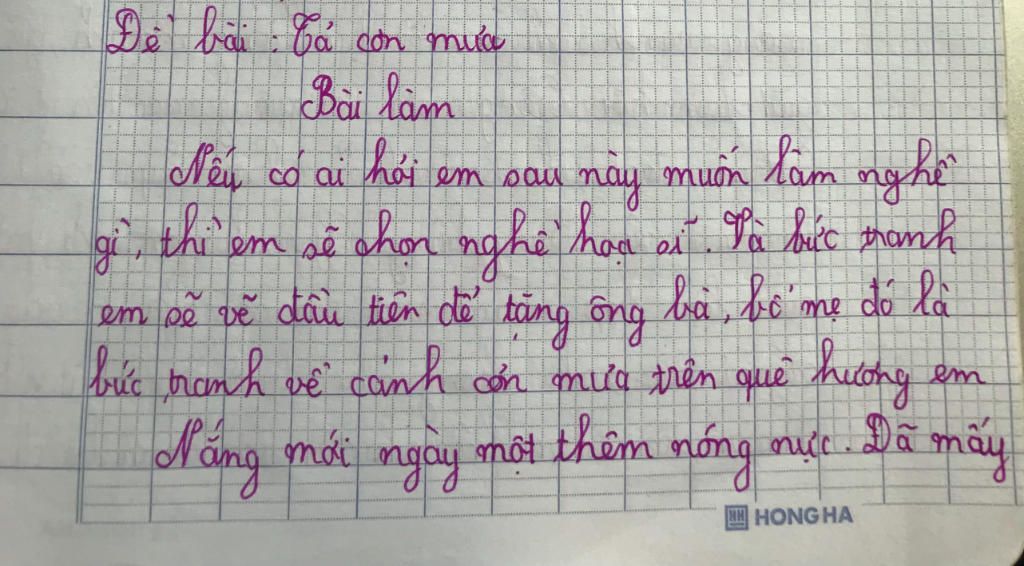 Đề bài: Tả cơn mưa
Bài làm
Nếu có ai hỏi em sau này muốn làm nghề
gì, thì em sẽ chọn nghề hoạ sĩ. Và bức tranh
em sẽ vẽ đầu tiên để tặng ông bà, bố mẹ đó là
bức tranh về cảnh cơn mưa trên quê hương em
Nắng mỗi ngày một thêm nóng nực. Đã mấy
HONG HA